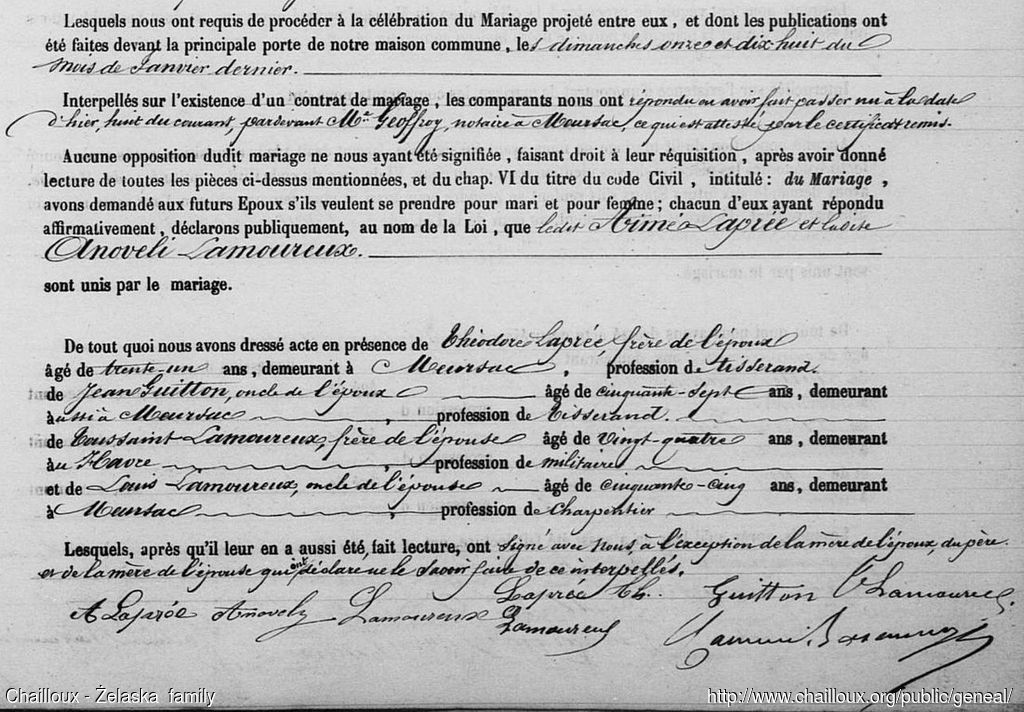 Lesquels nous ont requis de procéder à la célébration du Mariage projeté entre eux, et dont les publications ont
été faites devant la principale porte de notre maison commune, les dimanches onze et dix huit du
mois de Janvier dernier.
Interpellés sur l'existence d'un contrat de mariage, les comparants nous ont répondu en avoir fait passer un à la date
d'hier, huit du courant, pardevant Me Geoffroy, notaire à Meursac, ce qui est attesté par le certificat remis.
Aucune opposition dudit mariage ne nous ayant été signifiée, faisant droit à leur réquisition, après avoir donné
lecture de toutes les pièces ci-dessus mentionnées, et du chap. VI du titre du code Civil, intitulé : du Mariage,
avons demandé aux futurs Epoux s'ils veulent se prendre pour mari et pour femme; chacun d'eux ayant répondu
affirmativement, déclarons publiquement, au nom de la Loi, que ledit Aimé Laprée et ladite
Anoveli Lamoureux.
sont unis par le mariage.
De tout quoi nous avons dressé acte en présence de Théodore Laprée frère de l'époux
âgé de trente-un ans, demeurant à Meursac, profession de tisserand.
de Jean Guitton, oncle de l'époux âgé de cinquante-sept ans, demeurant
à aussi à Meursac, profession de Tisserand.
de Toussaint Lamoureux, frère de l'épouse âgé de Vingt-quatre ans, demeurant
au Havre, profession de militaire
et de Louis Lamoureux, oncle de l'épouse âgé de cinquante-cinq ans, demeurant
à Meursac, profession de Charpentier
Lesquels, après qu'il leur en a aussi été fait lecture, ont signé avec nous, à l'exception de la mère de l'époux, du père
et de la mère de l'épouse qui ont déclaré ne le savoir faire de ce interpellés.
A Laprée Anovely Lamoureux Laprée Th. Guitton Lamoureux
Lamoureux
Chailloux - Żelaska family http://www.chailloux.org/public/geneal/